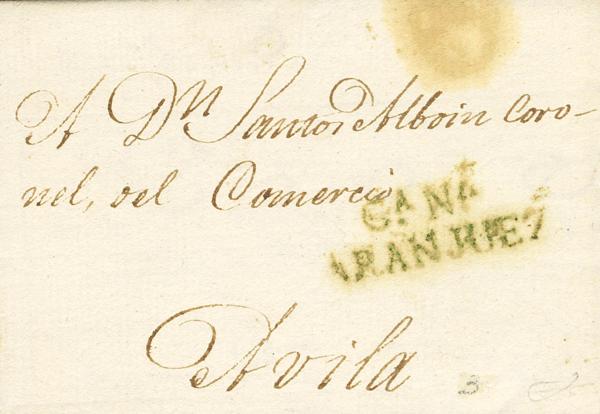 A Dn Santos Alboin Coro-
nel, del Comercio
Cª Nª
ARANJUEZ
Avila
3